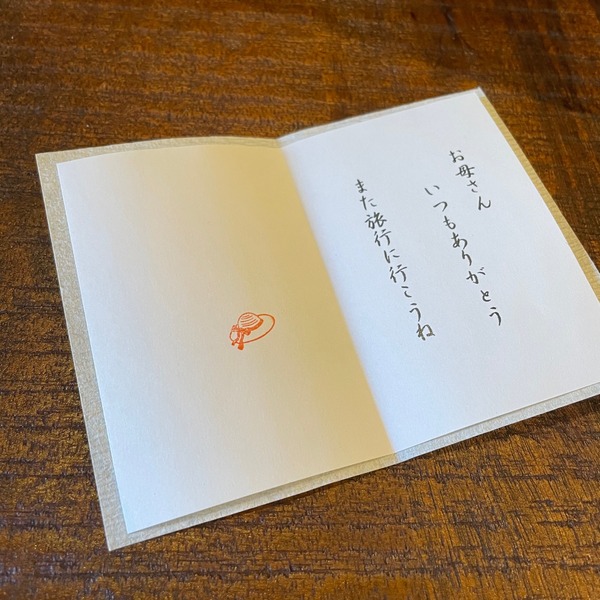 お母さん
いつもありがとう
また旅行に行こうね